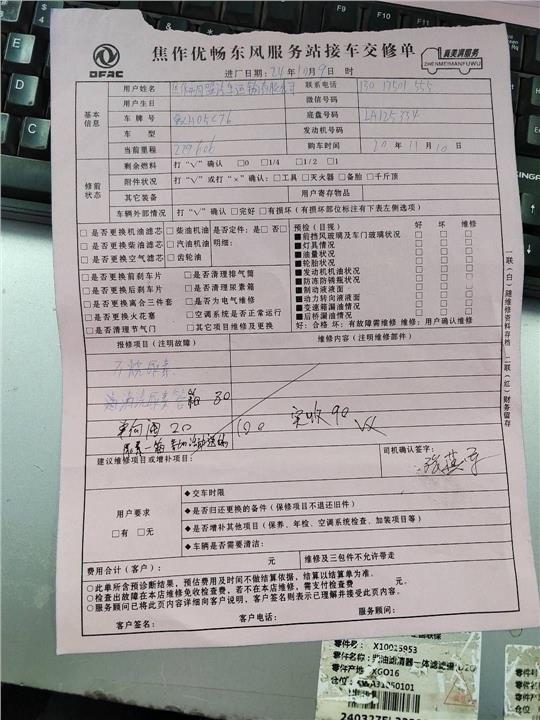 DFAC
焦作优畅东风服务站接车交修单
真美满服务
ZHENMEIMANFUWU
进厂日期：24年10月9日 时
基本信息
用户姓名
联系电话
用户生日
微信号码
车牌号
底盘号码 LA125334
车型
发动机号码
当前里程 229606
购车时间 20年11月10日
修前状态
剩余燃料 打"√"确认 □0 □1/4 □1/2 □1
附件状况 打"√"或打"×"确认：□工具 □灭火器 □备胎 □千斤顶
其它装备 用户寄存物品
车辆外部情况 打"√"确认 □完好 □有损坏（有损坏部位标注有下表左侧选项）
□是否更换机油滤芯 □柴油机油 是否定件：是□ 否□
□是否更换柴油滤芯 □汽油机油 明细：
□是否更换空气滤芯 □齿轮油
□是否更换前刹车片 □是否清理排气筒
□是否更换后刹车片 □是否清理尿素箱
□是否更换离合三件套 □是否为电气维修
□是否更换火花塞 □空调系统是否正常运行
□是否清理节气门 □其它项目维修及更换
预检（目视） 好 坏 维修
■前挡风玻璃及车门玻璃状况
■灯具情况
■油量状况
■轮胎状况
■发动机机油状况
■防冻防锈瓶状况
■制动液液面
■动力转向液液面
■变速箱漏油情况
■后桥漏油情况
好：合格 坏：有故障需维修 维修：用户确认维修
报修项目（注明故障） 维修内容（注明维修部件）
不烧尿素
箱 80
20 100 实收90
尿素一箱
建议维修项目或增补项目：
司机确认签字：
用户要求
□有 □无
◆交车时限
◆是否归还更换的备件（保修项目不退还旧件）
◆是否增补其他项目（保养、年检、空调系统检查、加装项目等）
◆车辆是否需要清洁：
费用合计（客户）： 元 维修及三包件不允许带走
○此单所含预诊断结果，预估费用及时间不做结算依据，结算以结算单为准。
○检查出故障在本店维修免收检查费，若不在本店维修，需支付检查费 元。
○服务顾问已将此页内容详细向客户说明，客户签名则表示已理解并接受此页内容。
客户签名： 客户电话： 服务顾问：
一联（白）随维修资料存档 二联（红）财务留存
零件号： X10015953
零件名称：柴油滤清器一体滤滤
零件产地 XGO16